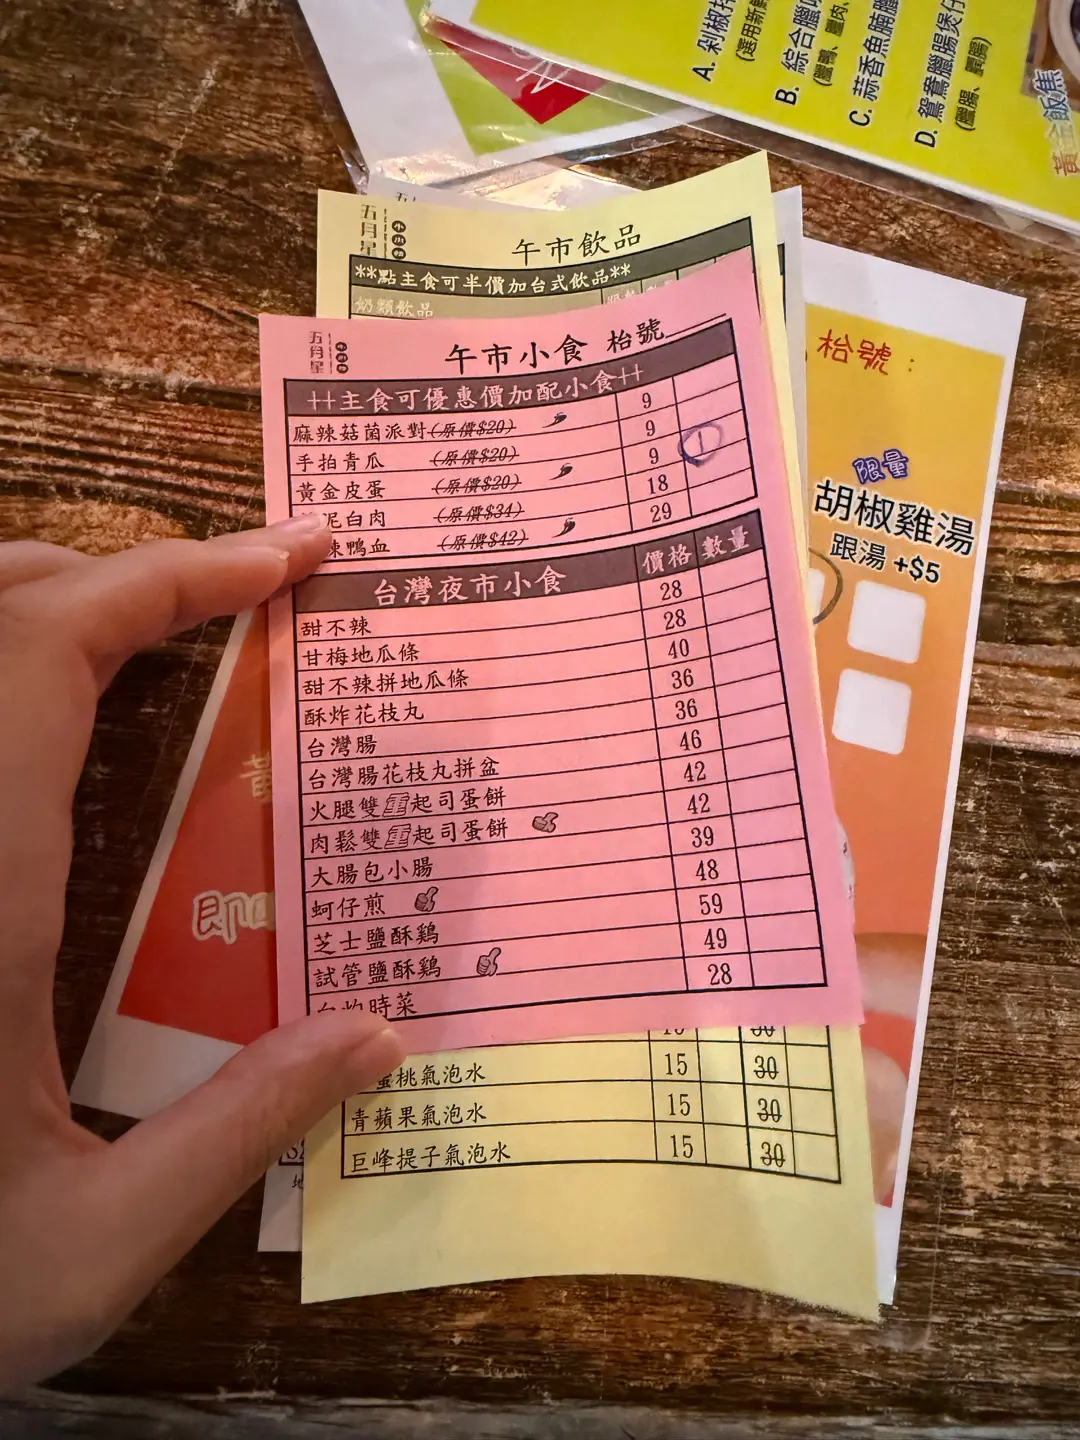 A. 剁椒
(選用新鮮
B. 綜合臘味
(臘鴨、臘肉、
C. 蒜香魚腩
D. 鴛鴦臘腸煲仔
(臘腸、膶腸)
黃金飯焦
五月星
午市飲品
**點主食可半價加台式飲品**
奶類飲品
五月星
午市小食 枱號
++主食可優惠價加配小食++
麻辣菇菌派對(原價$20) 9
手拍青瓜 (原價$20) 9
黃金皮蛋 (原價$20) 9 1
泥白肉 (原價$34) 18
辣鴨血 (原價$42) 29
台灣夜市小食 價格 數量
甜不辣 28
甘梅地瓜條 28
甜不辣拼地瓜條 40
酥炸花枝丸 36
台灣腸 36
台灣腸花枝丸拼盆 46
火腿雙重起司蛋餅 42
肉鬆雙重起司蛋餅 42
大腸包小腸 39
蚵仔煎 48
芝士鹽酥鷄 59
試管鹽酥鷄 49
白灼時菜 28
枱號：
限量
胡椒雞湯
跟湯 +$5
即
蜜桃氣泡水 15 30
青蘋果氣泡水 15 30
巨峰提子氣泡水 15 30